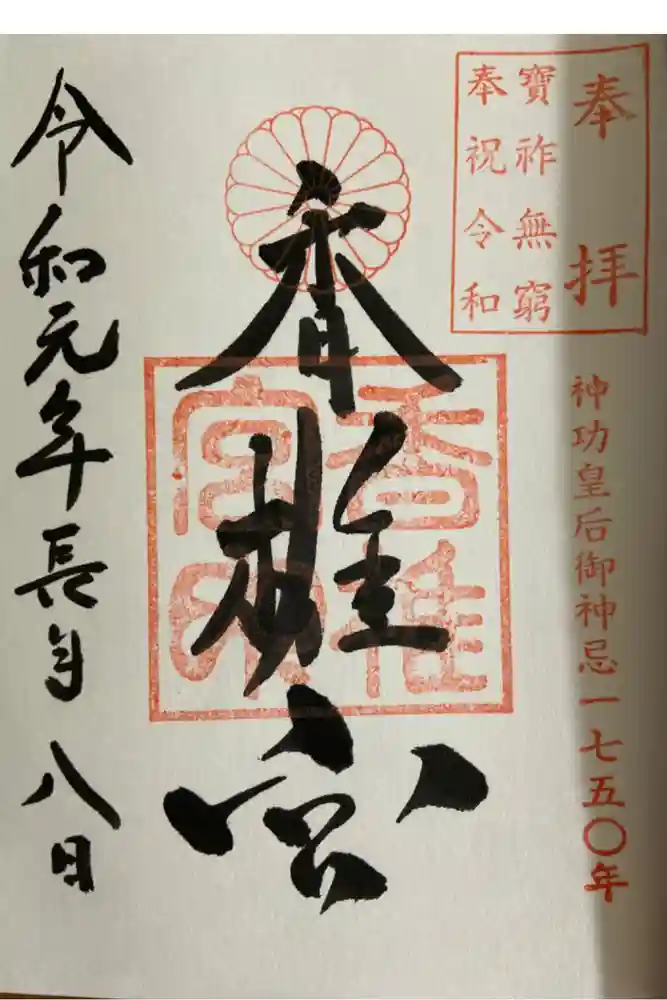 奉拝
寶祚無窮
奉祝令和
神功皇后御神忌一七五〇年
香椎宮
香椎
宮印
令和元年長月八日